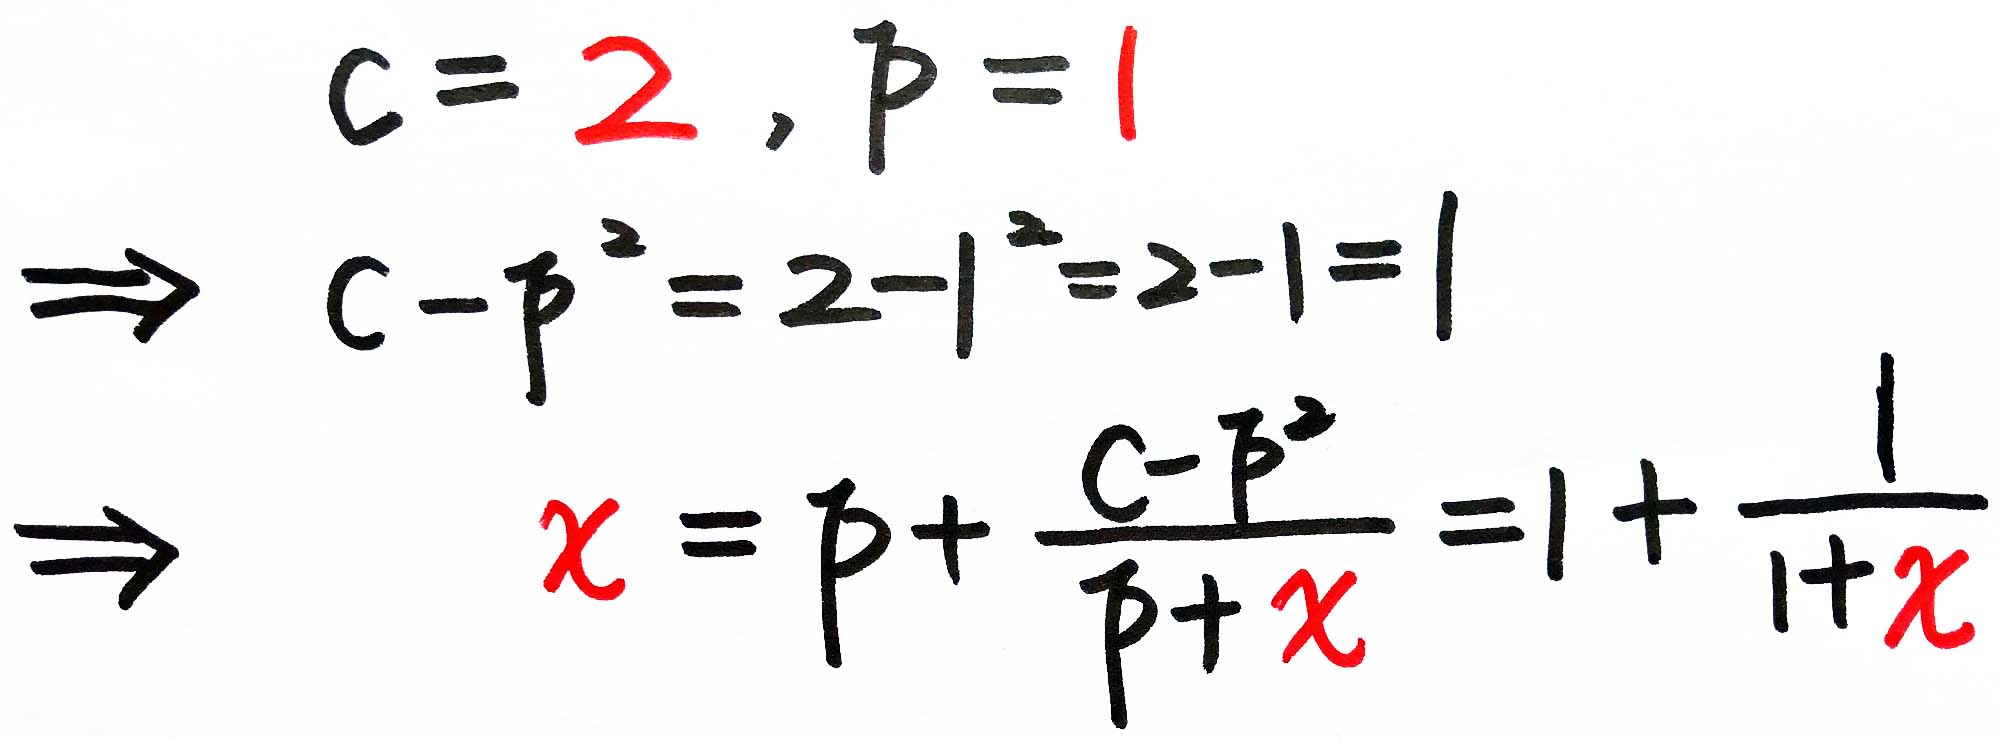 c = 2 , p = 1
⇒ c - p² = 2 - 1² = 2 - 1 = 1
⇒ x = p + (c - p²)/(p + x) = 1 + 1/(1 + x)